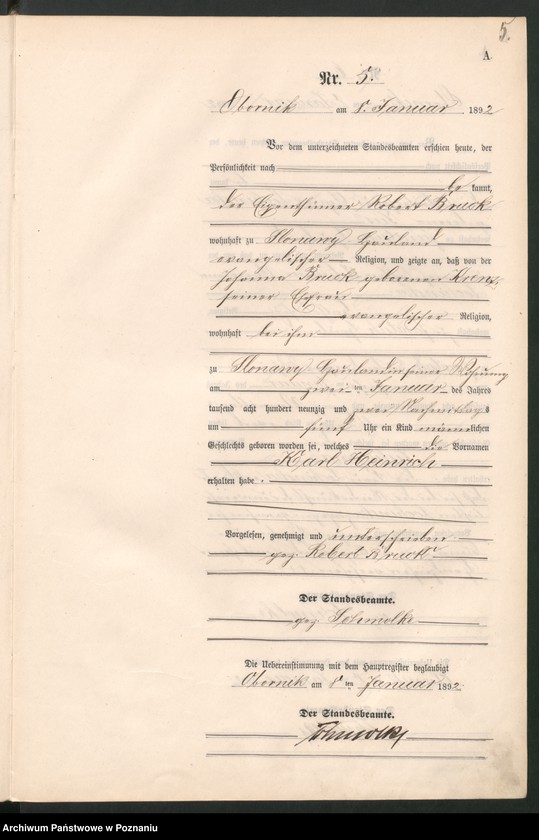 5.
A.
Nr. 5.
Obornik am Januar 1892
Vor dem unterzeichneten Standesbeamten erschien heute, der
Persönlichkeit nach
be kannt,
der Eigenthümer Robert Bruck
wohnhaft zu Slonawy Hauland
evangelischer Religion, und zeigte an, daß von der
Johanna Bruck geborenen Krenz
seiner Ehefrau
evangelischer Religion,
wohnhaft bei ihm
zu Slonawy Hauland in seiner Wohnung
am zwei ten Januar des Jahres
tausend acht hundert neunzig und zwei Nachmittags
um fünf Uhr ein Kind männlichen
Geschlechts geboren worden sei, welches die Vornamen
Karl Heinrich
erhalten habe.
Vorgelesen, genehmigt und unterschrieben
gez. Robert Bruck
Der Standesbeamte.
gez. Schmolke
Die Uebereinstimmung mit dem Hauptregister beglaubigt
Obornik am ten Januar 1892.
Der Standesbeamte.
Schmolke
Archiwum Państwowe w Poznaniu